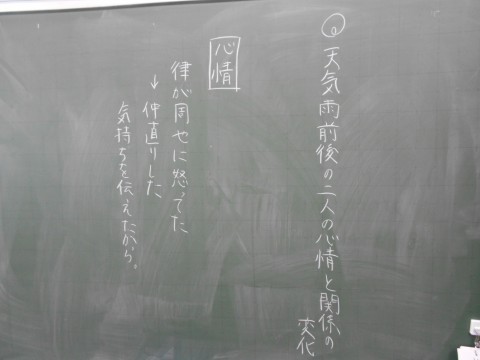 ⑥天気雨前後の二人の心情と関係の
変化
心情
律が周也に怒ってた
↓仲直りした
気持ちを伝えたから。